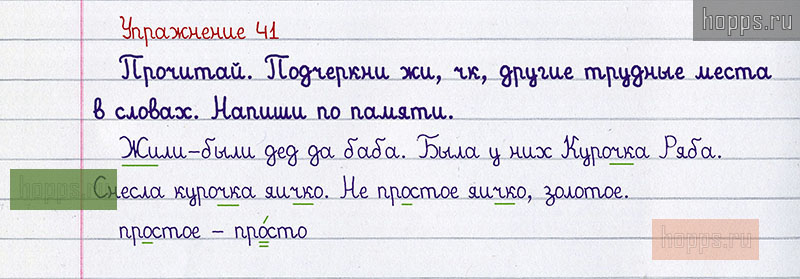 hopps.ru
Упражнение 41
Прочитай. Подчеркни жи, чк, другие трудные места
в словах. Напиши по памяти.
Жили-были дед да баба. Была у них Курочка Ряба.
hopps.ru
Снесла курочка яичко. Не простое яичко, золотое.
простое – про́сто
hopps.ru